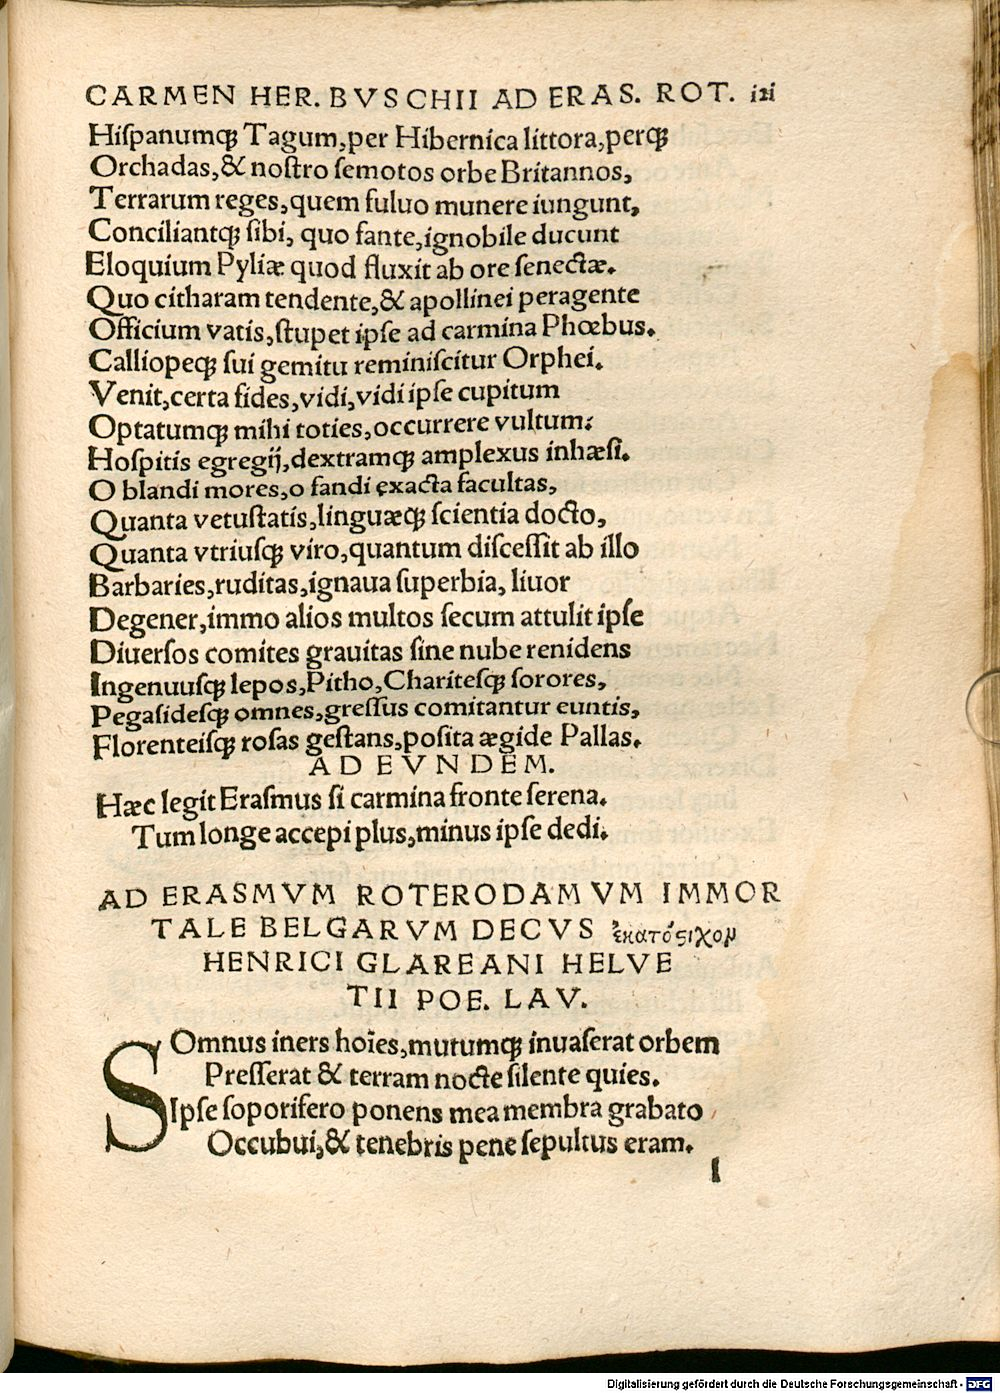 CARMEN HER. BVSCHII AD ERAS. ROT. iii
Hiſpanumqꝫ Tagum,per Hibernica littora,perqꝫ
Orchadas,& noſtro ſemotos orbe Britannos,
Terrarum reges,quem fuluo munere iungunt,
Conciliantqꝫ ſibi, quo fante,ignobile ducunt
Eloquium Pyliæ quod fluxit ab ore ſenectæ.
Quo citharam tendente,& apollinei peragente
Officium vatis,ſtupet ipſe ad carmina Phœbus.
Calliopeqꝫ ſui gemitu reminiſcitur Orphei.
Venit,certa fides,vidi,vidi ipſe cupitum
Optatumqꝫ mihi toties,occurrere vultum:
Hoſpitis egregij,dextramqꝫ amplexus inhæſi.
O blandi mores,o fandi exacta facultas,
Quanta vetuſtatis,linguæqꝫ ſcientia docto,
Quanta vtriuſqꝫ viro,quantum diſceſſit ab illo
Barbaries,ruditas,ignaua ſuperbia, liuor
Degener,immo alios multos ſecum attulit ipſe
Diuerſos comites grauitas ſine nube renidens
Ingenuuſqꝫ lepos,Pitho,Chariteſqꝫ ſorores,
Pegaſideſqꝫ omnes,greſſus comitantur euntis,
Florenteiſqꝫ roſas geſtans,poſita ægide Pallas.
AD EVNDEM.
Hæc legit Eraſmus ſi carmina fronte ſerena.
Tum longe accepi plus,minus ipſe dedi.
AD ERASMVM ROTERODAMVM IMMOR
TALE BELGARVM DECVS ἑκατόςιχομ
HENRICI GLAREANI HELVE
TII POE. LAV.
SOmnus iners hoīes,mutumqꝫ inuaſerat orbem
Preſſerat & terram nocte ſilente quies.
Ipſe ſoporifero ponens mea membra grabato
Occubui,& tenebris pene ſepultus eram.
I
Digitalisierung gefördert durch die Deutsche Forschungsgemeinschaft - DFG